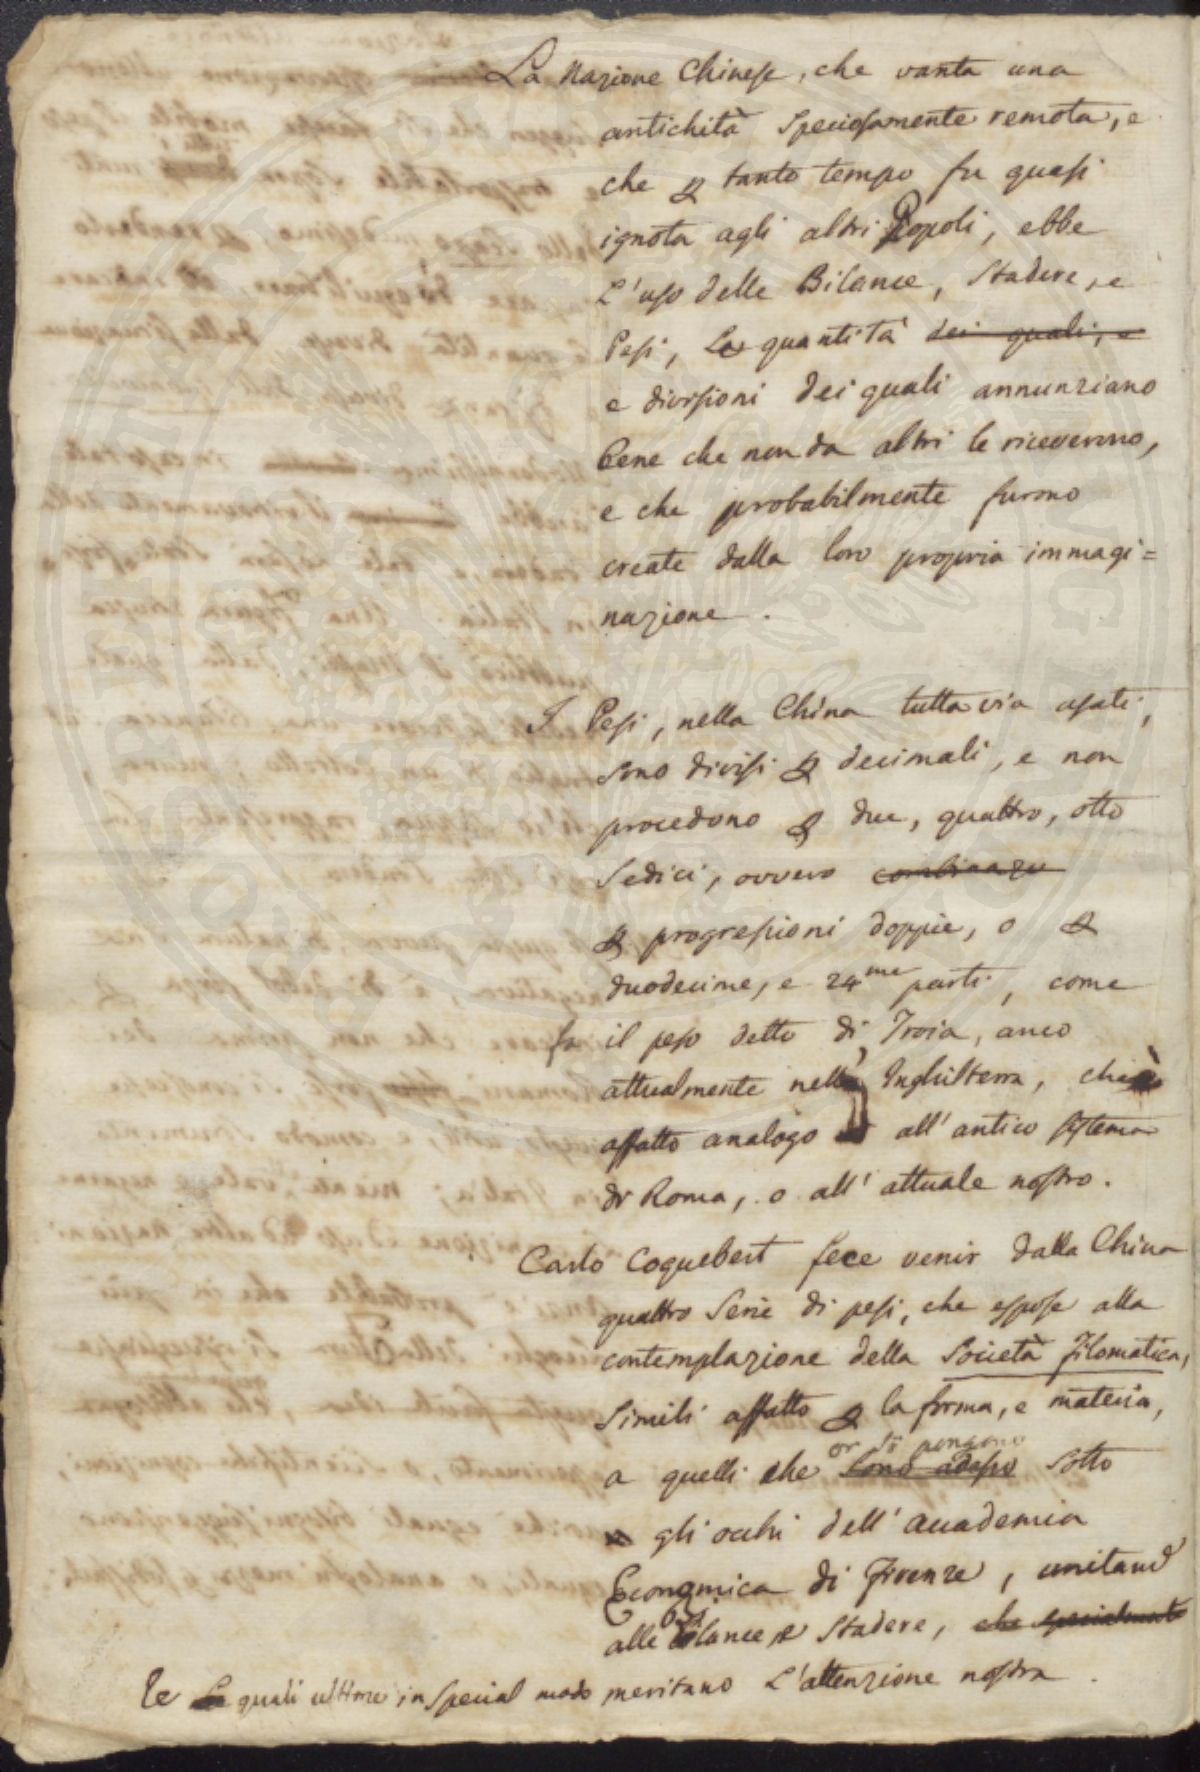 La Nazione Chinese, che vanta una
antichità speciosamente remota, e
che p tanto tempo fu quasi
ignota agli altri Popoli, ebbe
L'uso delle Bilance, Stadere, e
Pesi, Le quantità dei quali, e
e divisioni dei quali annunziano
bene che non da altri le riceverono,
e che probabilmente furono
create dalla loro propria immagi=
nazione.
I Pesi, nella China tutta via usati,
sono divisi p decimali, e non
procedono p due, quattro, otto
sedici, ovvero combinazu
p progressioni doppie, o p
duodecime, e 24me parti, come
fa il peso detto di Troia, anco
attualmente nell' Inghilterra, che è
affatto analogo all' antico sistema
di Roma, o all' attuale nostro.
Carlo Coquebert fece venir dalla China
quattro Serie di pesi, che espose alla
contemplazione della Società Filomatica,
Simili affatto p la forma, e materia,
or si pongono
a quelli che sono adesso sotto
gli occhi dell' Accademia
Economica di Firenze, unitamte
alle bilance e Stadere, che specialmente
le quali ultime in special modo meritano L'attenzione nostra.